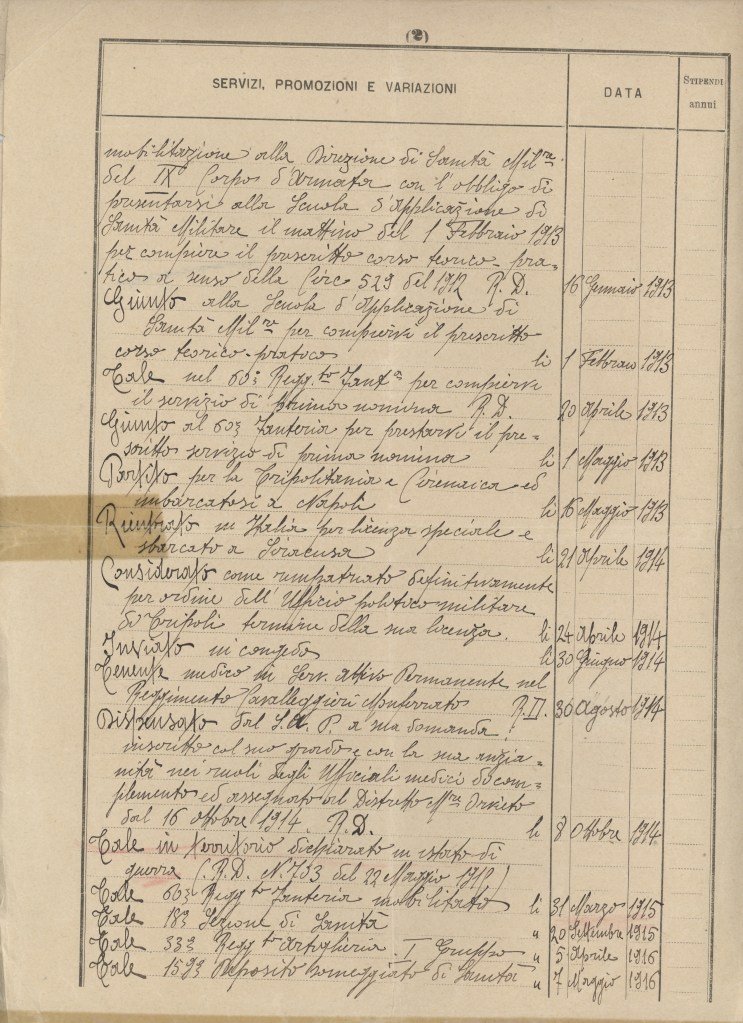 (2)
SERVIZI, PROMOZIONI E VARIAZIONI DATA STIPENDI annui
mobilitazione alla Direzione di Sanità Milre
del IX° Corpo d'Armata con l'obbligo di
presentarsi alla Scuola d'Applicazione di
Sanità Militare il mattino del 1 Febbraio 1913
per compiere il prescritto corso teorico-pra-
tico a senso della Circ 529 del 1912 R. D. 16 Gennaio 1913
Giunto alla Scuola d'Applicazione di
Sanità Milre per compiervi il prescritto
corso teorico-pratico li 1 Febbraio 1913
Tale nel 60° Regg.to Fanta per compiervi
il servizio di prima nomina R. D. 20 Aprile 1913
Giunto al 60° Fanteria per prestarvi il pre-
scritto servizio di prima nomina li 1 Maggio 1913
Partito per la Tripolitania e Cirenaica ed
imbarcatosi a Napoli li 16 Maggio 1913
Rientrato in Italia per licenza speciale e
sbarcato a Siracusa li 21 Aprile 1914
Considerato come rimpatriato definitivamente
per ordine dell'Ufficio politico militare
di Tripoli termine della sua licenza. li 24 Aprile 1914
Inviato in congedo li 30 Giugno 1914
Tenente medico in Serv. attivo Permanente nel
Reggimento Cavalleggieri Monferrato R. D. 30 Agosto 1914
Dispensato dal S. A. P. a sua domanda:
inscritto col suo grado e con la sua anzia-
nità nei ruoli degli Ufficiali medici di com-
plemento ed assegnato al Distretto Mre Orvieto
dal 16 ottobre 1914. R. D. li 8 Ottobre 1914
Tale in territorio dichiarato in istato di
guerra (R. D. N. 703 del 22 Maggio 1915)
Tale 60° Regg.to Fanteria mobilitato li 31 Marzo 1915
Tale 18° Sezione di Sanità " 20 Settembre 1915
Tale 33° Regg.to Artiglieria I Gruppo " 5 Aprile 1916
Tale 159° Deposito Someggiato di Sanità " 7 Maggio 1916